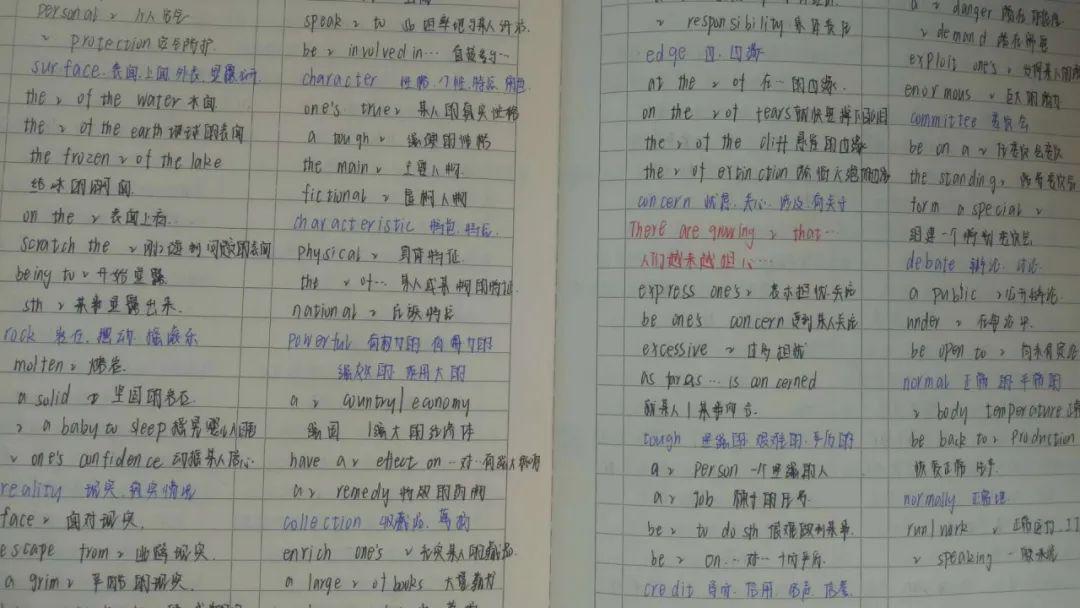 personal ~ 个人安全
~ protection 安全防护
surface 表面 上面 外表
the ~ of the water 水面
the ~ of the earth 地球的表面
the frozen ~ of the lake
结冰的湖面
on the ~ 表面上看
scratch the ~ 问题的表面
being to ~ 开始显露
sth ~ 某事显露出来
rock 岩石 摆动 摇滚乐
molten ~ 熔岩
a solid ~ 坚固的岩石
~ a baby to sleep 摇晃婴儿入睡
~ one's confidence 动摇某人信心
reality 现实 真实情况
face ~ 面对现实
escape from ~ 逃避现实
a grim ~ 严酷的现实
speak ~ to
be ~ involved in…
character 性格 个性 特点 角色
one's true ~ 某人的真实性格
a tough ~ 坚强的性格
the main ~ 主要人物
fictional ~ 虚构人物
characteristic 特色 特征
physical ~ 身体特征
the ~ of… 某人或某物的特征
national ~ 民族特征
powerful 有权力的 有势力的
强效的 作用大的
a ~ country / economy
强国 / 强大的经济体
have a ~ effect on…对…有强大影响
a ~ remedy 特效的药物
collection 收藏品
enrich one's ~ 充实某人的藏品
a large ~ of books 大量教材
~ responsibility 承担责任
edge 边 边缘
at the ~ of 在…的边缘
on the ~ of tears
the ~ of the cliff 悬崖的边缘
the ~ of extinction 濒临灭绝的边缘
concern 忧虑 关心 涉及 有关于
There are growing ~ that…
人们越来越担心…
express one's ~ 表示担忧/关注
be one's concern 受到某人关注
excessive ~ 过多担忧
as far as … is concerned
就某人 / 某事而言
tough 坚强的 艰难的 严厉的
a ~ person 一个坚强的人
a ~ job 棘手的任务
be ~ to do sth 很难做到某事
be ~ on… 对…十分严厉
credit 学分 信用 信誉
a ~ danger 潜在
~ demand 潜在需要
exploit one's ~
enormous ~ 巨大的潜力
committee 委员会
be on a ~
the standing ~ 常务委员会
form a special ~
组建一个特别委员会
debate 辩论 讨论
a public ~ 公开辩论
under ~
be open to ~
normal 正常的 平常的
~ body temperature
be back to ~ production
恢复正常生产
normally 正常地
run / work ~ 正常运行
~ speaking 一般来说